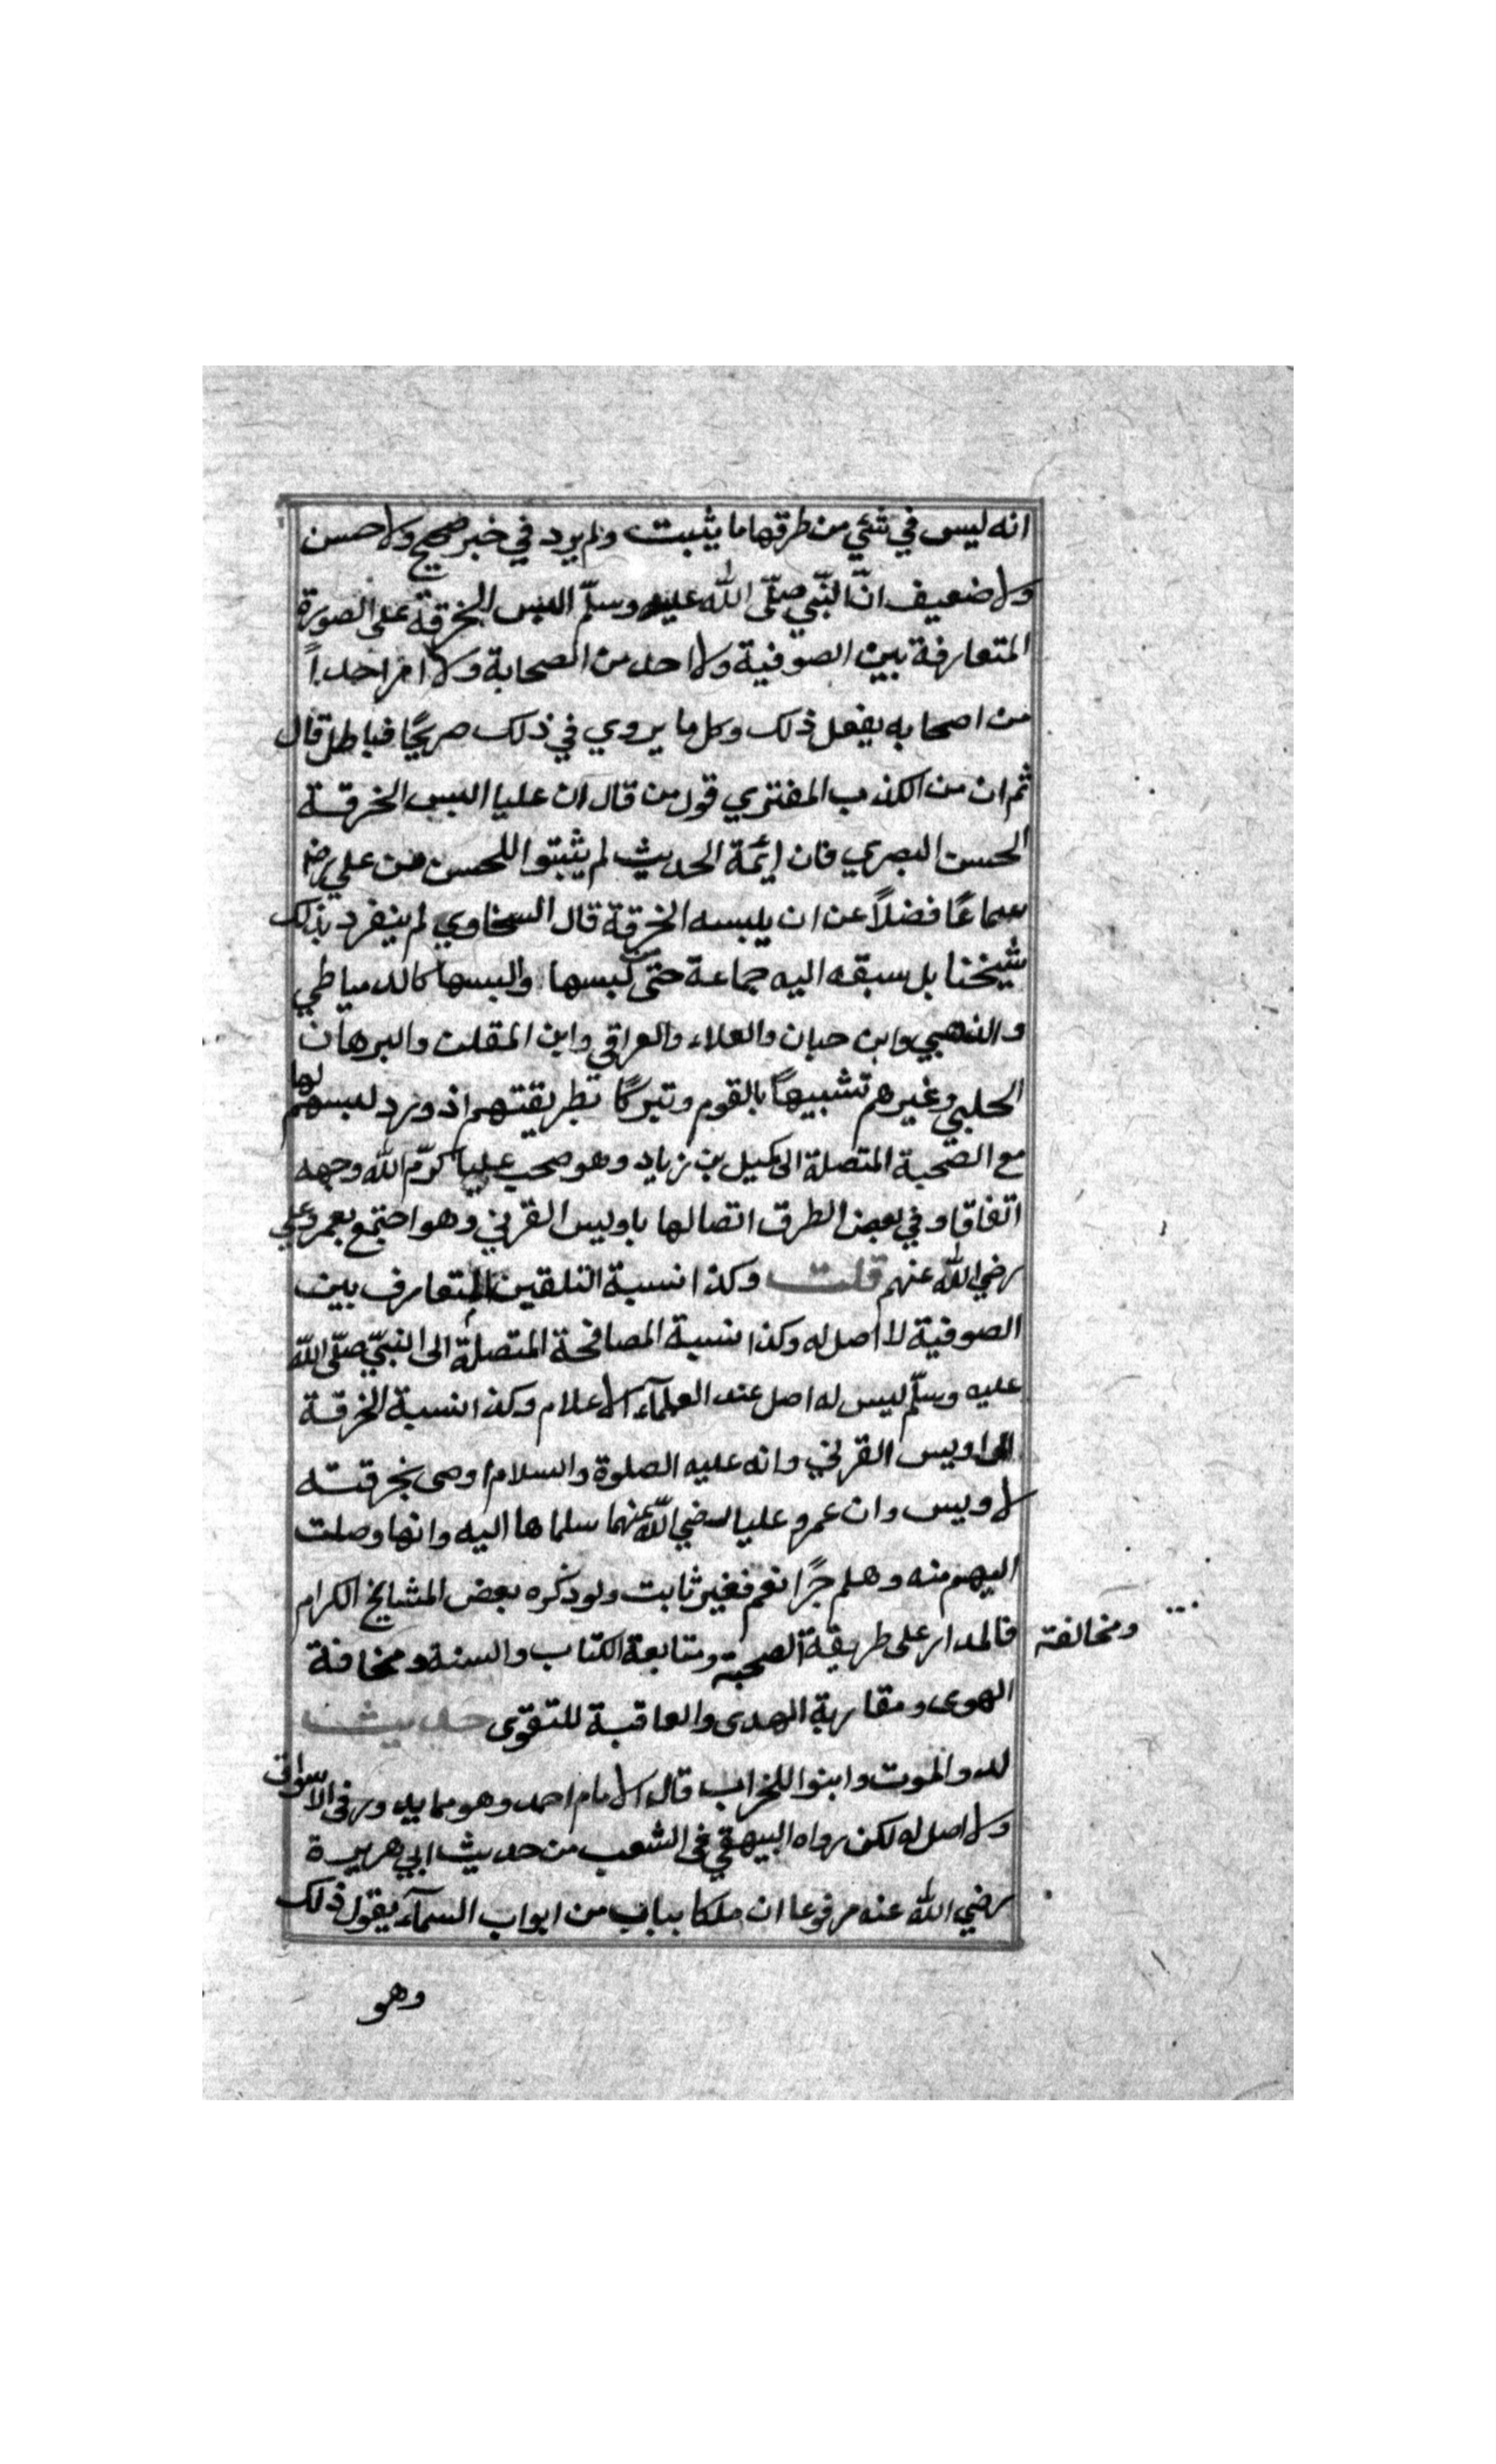 انه ليس في شئي من طرقها ما يثبت ولم يرد في خبر صحيح ولا حسن
ولا ضعيف انّ النّبي صلّى اللّٰه عليه وسلّم البس الخرقة على الصورة
المتعارفة بين الصوفية ولا احد من الصحابة ولا امر احداً
من اصحابه يفعل ذلك وكل ما يروي في ذلك صريحًا فباطل قال
ثم ان من الكذب المفتري قول من قال ان عليا البس الخرقة
الحسن البصري فان ائمّة الحديث لم يثبتوا للحسن من علي رض
سماعًا فضلاً عن ان يلبسه الخرقة قال السخاوي لم ينفرد بذلك
شيخنا بل سبقه اليه جماعة حتى لبسها والبسها كالدمياطي
والذهبي وابن حبان والعلاء والعراقي وابن الملقن والبرهان
الحلبي وغيرهم تشبيهاً بالقوم وتبركًا بطريقتهم اذ ورد لبسهم لها
مع الصحبة المتصلة الى كميل بن زياد وهو صحب عليا كرّم اللّٰه وجهه
اتفاقا وفي بعض الطرق اتصالها باويس القرني وهو اجتمع بعمر وعلي
رضي اللّٰه عنهم قلت وكذا نسبة التلقين المتعارف بين
الصوفية لا اصل له وكذا نسبة المصافحة المتصلة الى النبيّ صلّى اللّٰه
عليه وسلّم ليس له اصل عند العلمآء الاعلام وكذا نسبة الخرقة
الى اويس القرني وانه عليه الصلوة والسلام اوصى بخرقته
لاويس وان عمر وعليا رضي اللّٰه عنهما سلماها اليه وانها وصلت
اليهم منه وهلم جرًا نعم فغير ثابت ولو ذكره بعض المشايخ الكرام
فالمدار على طريقة الصحبة ومتابعة الكتاب والسنة ومخافة
ومخالفة
الهوى ومقاربة الهدى والعاقبة للتقوى حديث
لدوا للموت وابنوا للخراب قال الامام احمد وهو مما يدور في الاسواق
ولا اصل له لكن رواه البيهقي في الشعب من حديث ابي هريرة
رضي اللّٰه عنه مرفوعا ان ملكا بباب من ابواب السمآء يقول ذلك
وهو